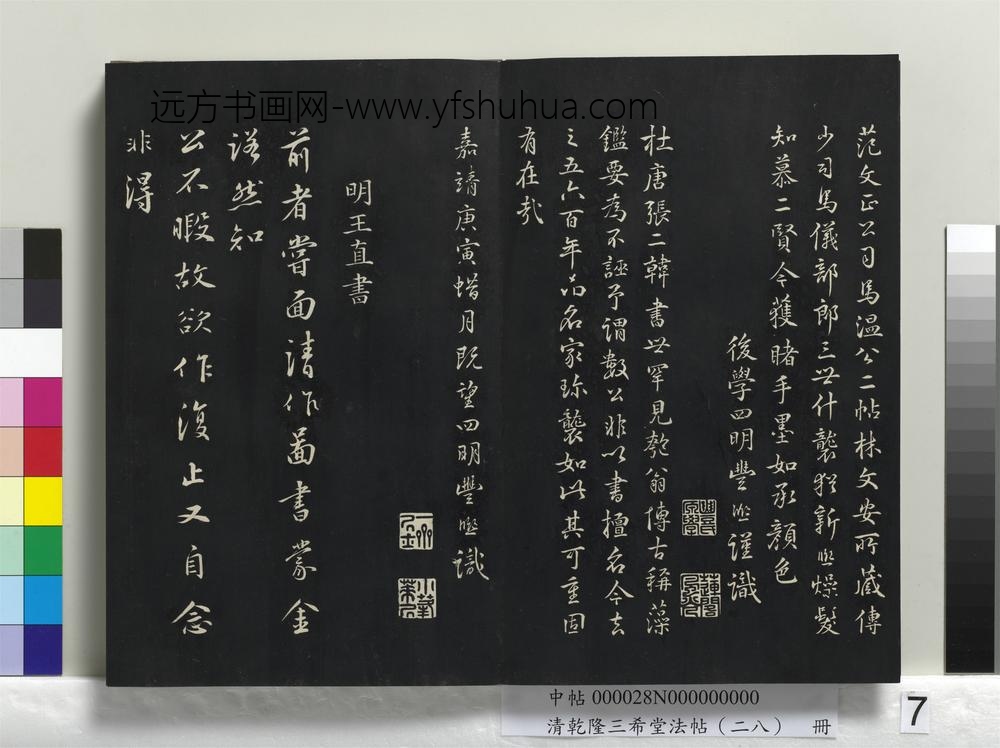 远方书画网-www.yfshuhua.com
范文正公司馬溫公二帖林文安所藏傳
少司馬儀部郎三世什襲猶新熙燥髮
知慕二賢今獲睹手墨如承顏色
後學四明豐熙謹識
杜唐張二韓書世罕見匏翁傳古稱藻
鑑要為不誣予謂數公非以書擅名今去
之五六百年而名家珍襲如此其可重固
有在哉
嘉靖庚寅蜡月既望四明豐熙識
明王直書
前者嘗面請作蔔書蒙金
諾然知
公不暇故欲作復止又自念
非得
中帖 000028N000000000
清乾隆三希堂法帖（二八） 冊
7